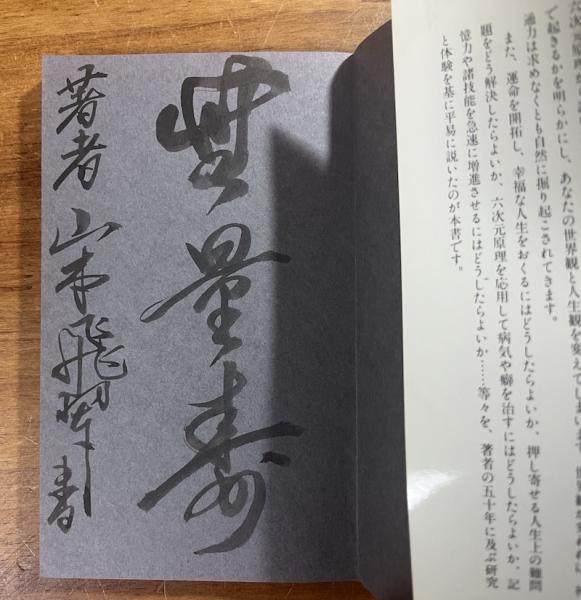 で起きるかを明らかにし、あなたの世界観と人生観を変えてしまいます。
通力は求めなくとも自然に掘り起こされてきます。
また、運命を開拓し、幸福な人生をおくるにはどうしたらよいか、押し寄せる人生上の難問
題をどう解決したらよいか、六次元原理を応用して病気や癖を治すにはどうしたらよいか、記
憶力や諸技能を急速に増進させるにはどうしたらよいか……等々を、著者の五十年に及ぶ研究
と体験を基に平易に説いたのが本書です。
無量寿
著者 山本飛翠書